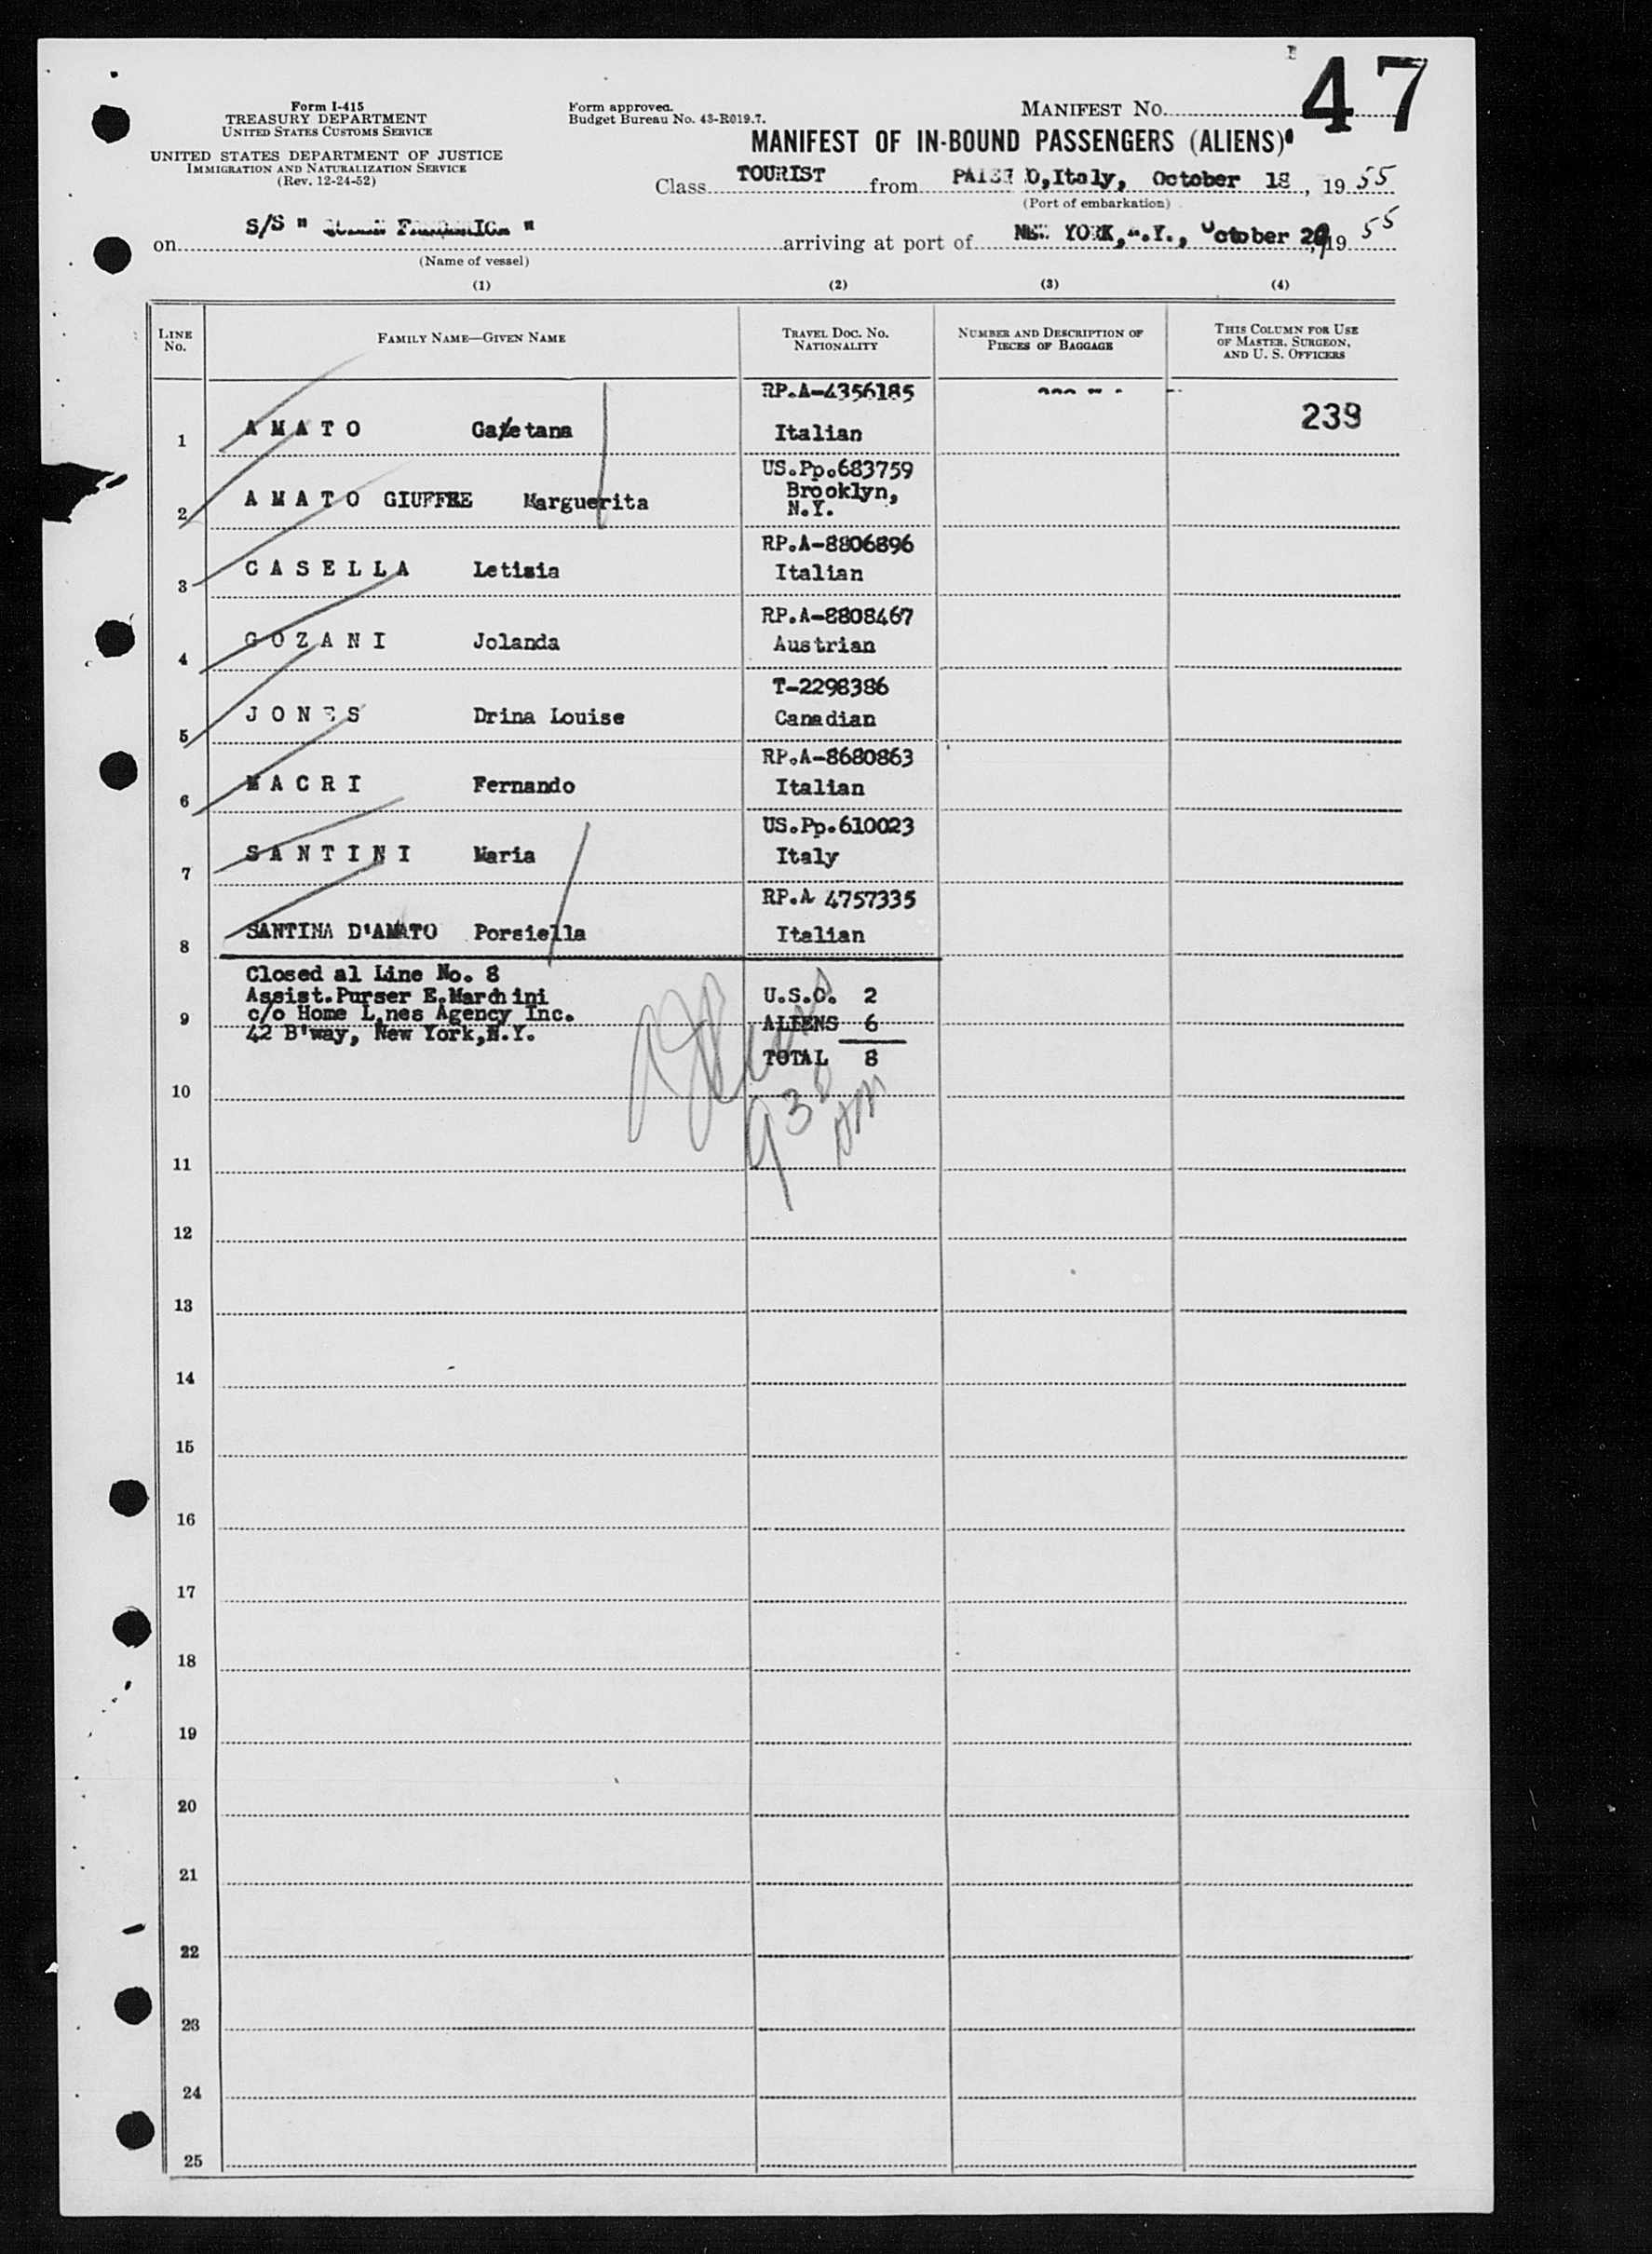 47
Form I-415
TREASURY DEPARTMENT
UNITED STATES CUSTOMS SERVICE
UNITED STATES DEPARTMENT OF JUSTICE
IMMIGRATION AND NATURALIZATION SERVICE
(Rev. 12-24-52)
Form approved.
Budget Bureau No. 43-R019.7.
MANIFEST NO.
MANIFEST OF IN-BOUND PASSENGERS (ALIENS)
Class TOURIST from O, Italy, October 18, 1955
(Port of embarkation)
on S/S " " arriving at port of NEW YORK, .Y., October 29 1955
(Name of vessel)
(1) (2) (3) (4)
LINE No. FAMILY NAME—GIVEN NAME TRAVEL DOC. NO. NATIONALITY NUMBER AND DESCRIPTION OF PIECES OF BAGGAGE THIS COLUMN FOR USE OF MASTER, SURGEON, AND U. S. OFFICERS
RP.A-4356185
239
1 AMATO Gaetana Italian
US.Pp.683759
2 AMATO GIUFFRE Marguerita Brooklyn, N.Y.
RP.A-8806896
3 CASELLA Letizia Italian
RP.A-8808467
4 GOZANI Jolanda Austrian
T-2298386
5 JONES Drina Louise Canadian
RP.A-8680863
6 MACRI Fernando Italian
US.Pp.610023
7 SANTINI Maria Italy
RP.A 4757335
8 SANTINA D'AMATO Porsiella Italian
Closed al Line No. 8
Assist.Purser E.Marchini U.S.C. 2
9 c/o Home Lines Agency Inc. ALIENS 6
42 B'way, New York,N.Y.
TOTAL 8
10
938
AM
11
12
13
14
15
16
17
18
19
20
21
22
23
24
25